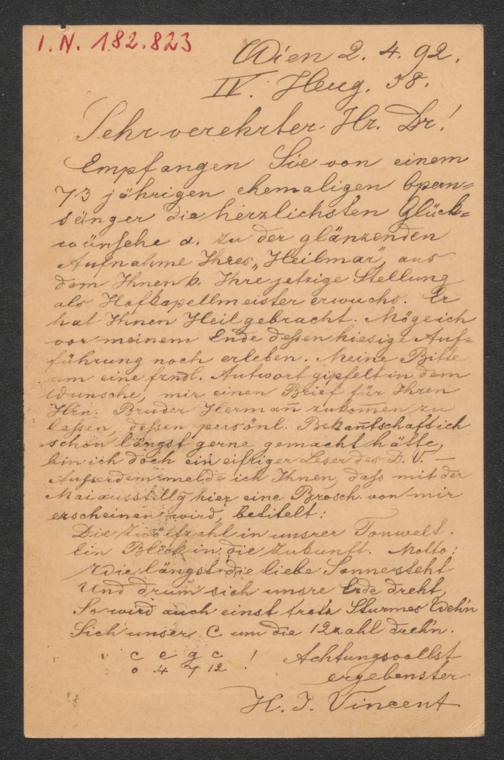 I.N. 182.823
Wien 2. 4. 92.
IV. Heug. 58.
Sehr verehrter Hr. Dr!
Empfangen Sie von einem
73 jährigen ehemaligen Opern-
sänger die herzlichsten Glück-
wünsche z. zu der glänzenden
Aufnahme Ihres "Heilmar" aus
dem Ihnen Ihre jetzige Stellung
als Hofkapellmeister erwuchs. Er
hat Ihnen Heil gebracht. Möge ich
vor meinem Ende deßen hiesige Auf-
führung noch erleben. Meine Bitte
um eine frndl. Antwort gipfelt in dem
Wunsche, mir einen Brief für Ihren
Hrn. Bruder Herman zukomen zu
laßen, deßen persönl. Bekantschaft ich
schon längst gerne gemacht hätte,
bin ich doch ein eifriger Leser des D. V. —
Außerdem melde ich Ihnen, daß mit der
Maiausstellg hier eine Brosch. von mir
erscheinen wird, betitelt:
Die Zwölfzahl in unsrer Tonwelt.
Ein Blick in die Zukunft. Motto:
Wie längst die liebe Sonne steht
Und drum sich unsre Erde dreht,
So wird auch einst trotz Sturmes Weh'n
Sich unser C um die 12zahl dreh'n.
c e g c !
0 4 7 12
Achtungsvollst
ergebenster
H. J. Vincent